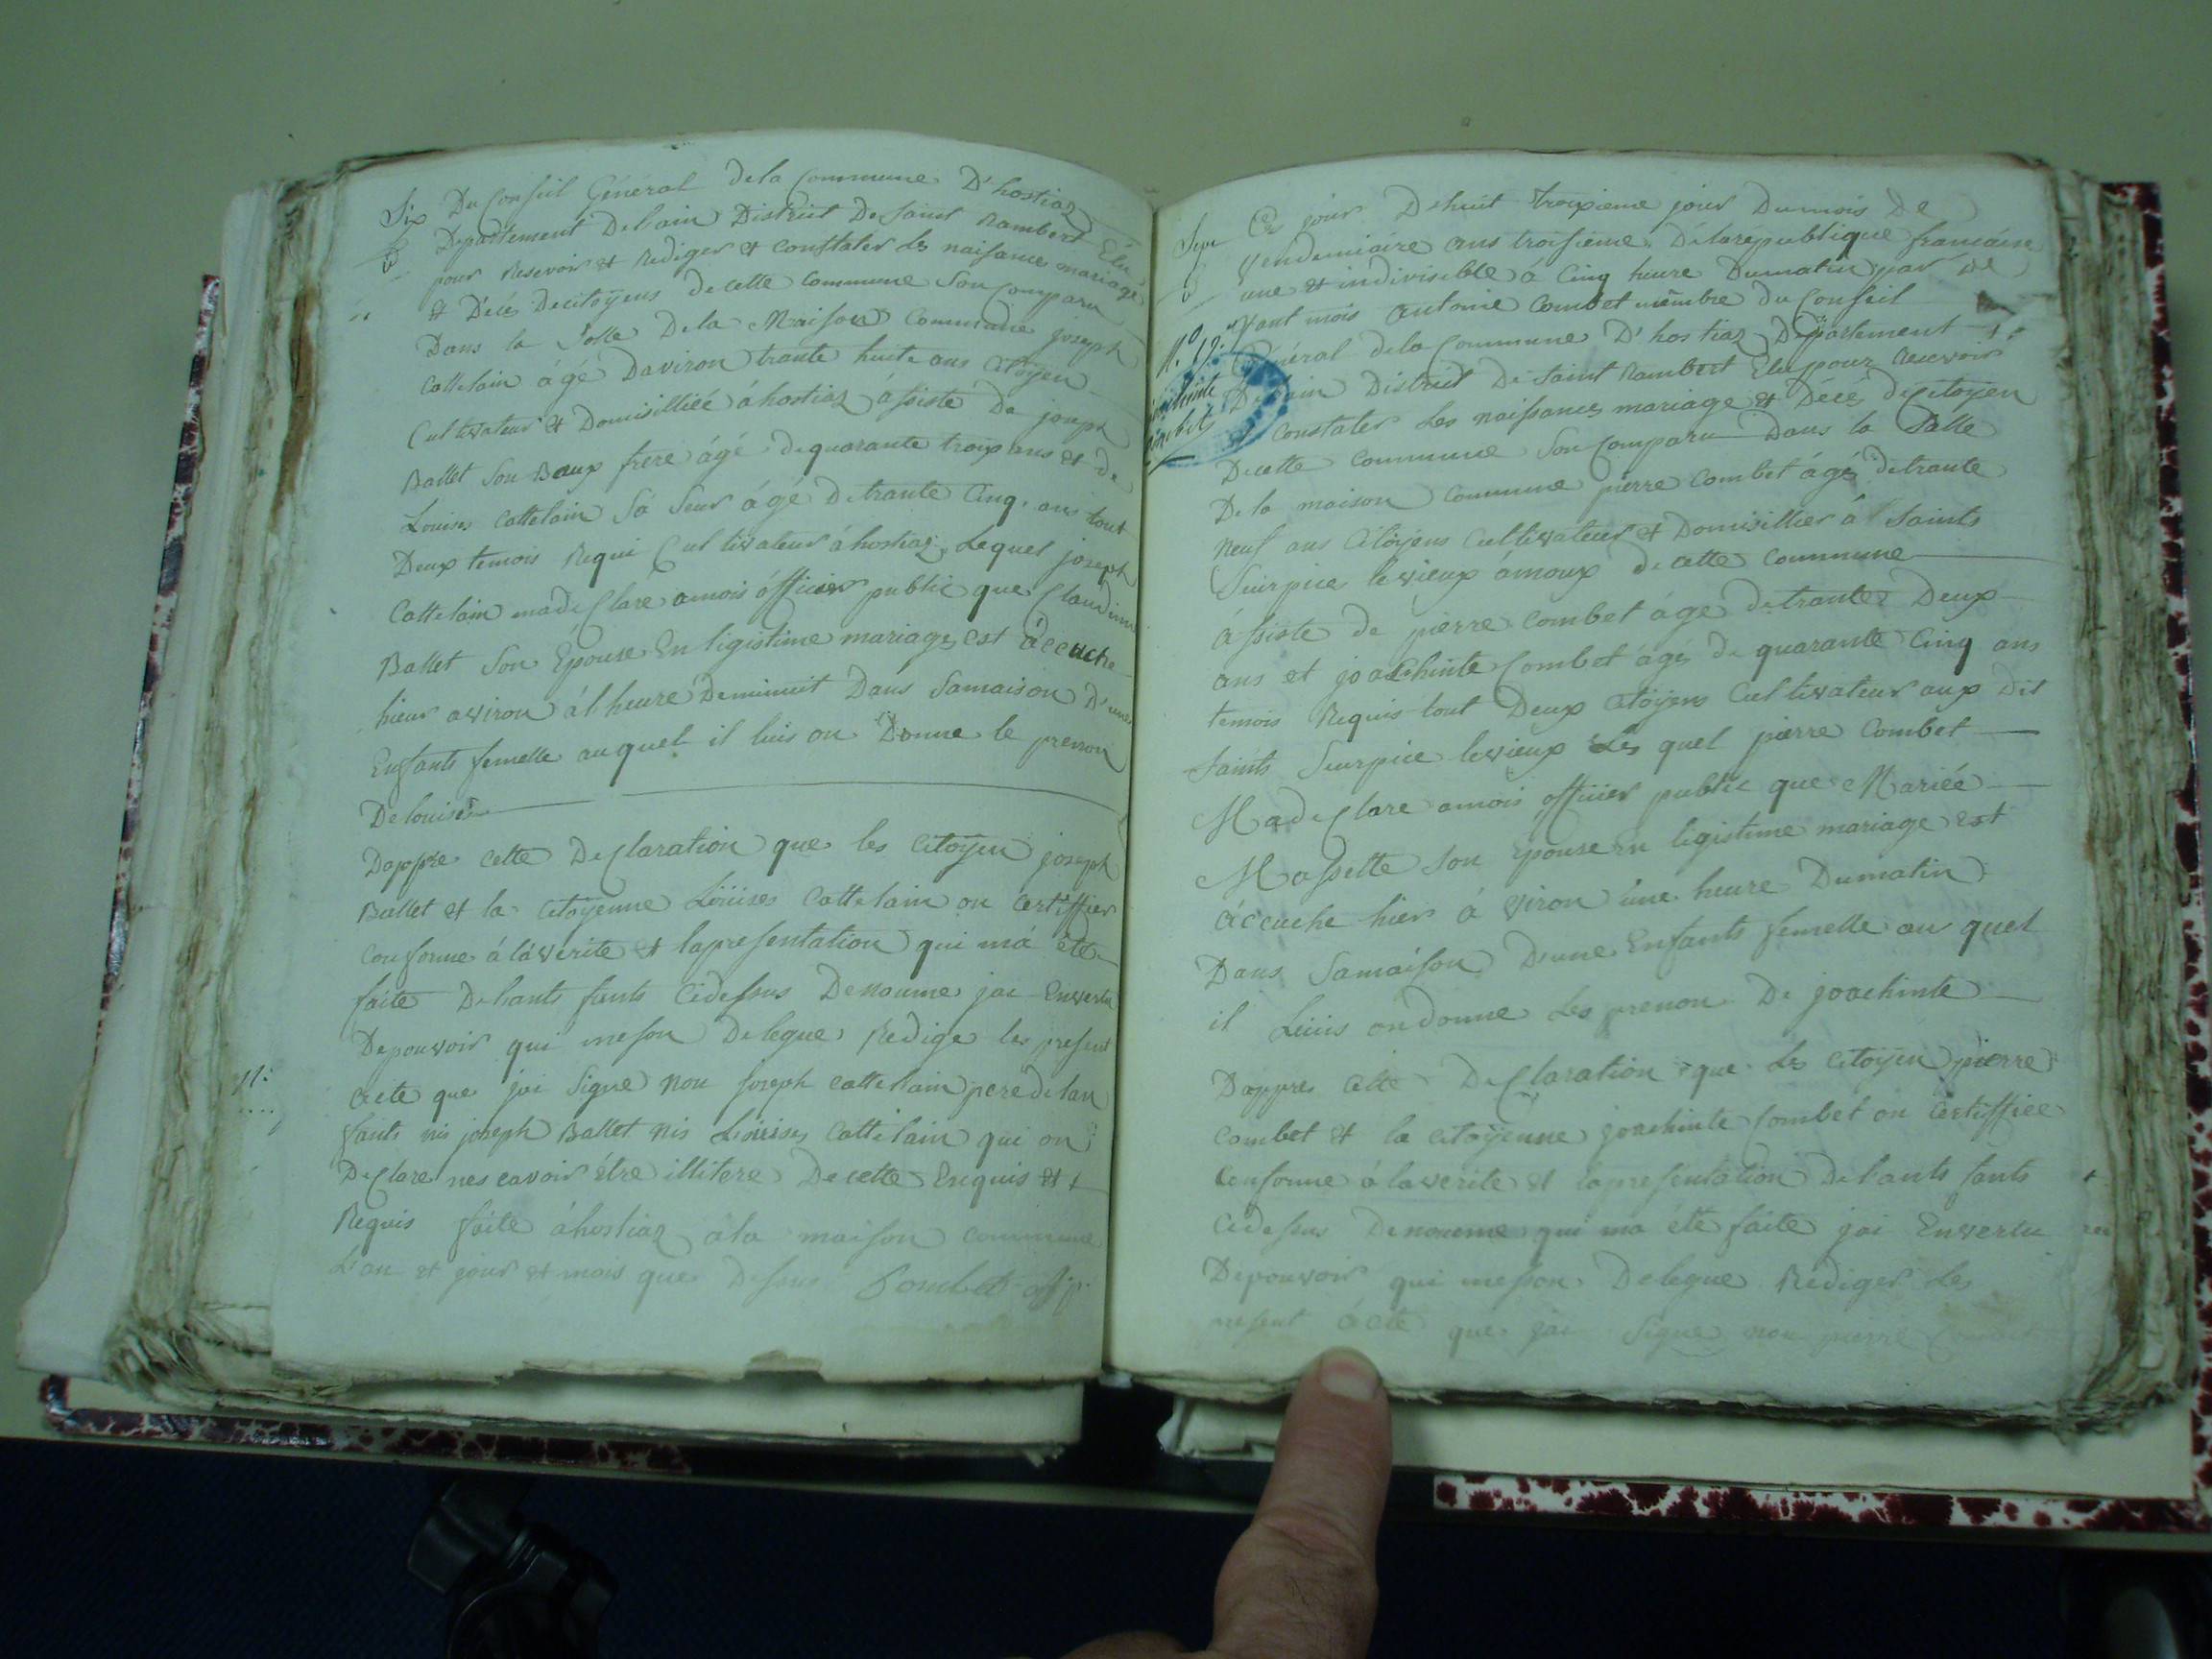 Six
Du Conseil Général de la Commune D'hostiaz
Departement De lain District De Saint Rambert Elu
pour Resevoir et Rediger et constater les naisance mariage
et Délés De citoÿens de cette commune Son Comparu
Dans la Salle De la Maison Commune joseph
Cattelain àgé Daviron trante huite ans Citoÿen
Cultivateur et Domisilliéé á hostiaz ássiste De joseph
Ballet Son Baux frere ágé de quarante troix ans et de
Louises Cattelain Sá Seur ágé De trante Cinq ans tout
Deux temois Requi Cultivateur á hostiaz, Lequel joseph
Cattelain ma declare amois ófficier public que Claudine
Ballet Son Épouse En ligistime mariage est áccuche
hieur aviron á l heure De minuit Dans Samaison D'une
Enfants femelle au quel il luis on Donne le prenon
De louises
Dappre cette Declaration que les Citoÿen joseph
Ballet et la Citoÿenne Loüises Cattelain on Certiffier
Conforme á lá verite et la presentation qui má éte
faite De lants fants Cidessus Denoume jai En vertu
De pouvoir qui me son Delegue Redige les present
Acte que jai Signe non joseph cattelain pere de lan
fants nis joseph Ballet nis Loüises Cattelain qui on
Declare ne savoir étre illitere De cette Enquis et
Requis faite á hostiaz a la maison commune
L'an et jour et mois que Dessus Combet off p.
11:
Ce jour Dhuit troixieme jour Du mois De
Vendemiaire ans troisieme De la republique francaise
une et indivisible á Cinq heure Dumatin par De
Vant mois Antoine Combet membre du Conseil
N.º 19.
Général de la Commune D'hostiaz Departement
De lain District De Saint Rambert Elu pour Recevoir
et Constater Les naissances mariage et Délés de citoyen
De cette Commune Son Comparu Dans la Salle
De la maison Commune pierre Combet ágé de trante
Neuf ans Citoÿens Cultivateur et Domisillier á Saints
Surpice levieux ámoux de cette Commune
Ássiste de pierre Combet ágé de trante Deux
ans et joachinte Combet ágé de quarante Cinq ans
temois Requis tout Deux Citoÿens Cultivateur aux Dit
Saints Surpice levieux Les quel pierre Combet
Ma declare amois officier public que Mariéé
Massette Son Épouse En ligistime mariage est
áccuche hier á viron une heure Dumatin
Dans Samaison Dune Enfants femelle au quel
il Luiis on donne Les prenon De joachinte
Dappre Cette Declaration que Les Citoÿen pierre
Combet et la Citoÿenne joachinte Combet on Certiffiee
Conforme á la verite et la presentation De lants fants
Cidessus Denoume qui ma éte faite jai En vertu
De pouvoir qui me son Delegue Rediger Les
present ácte que jai Signe non pierre